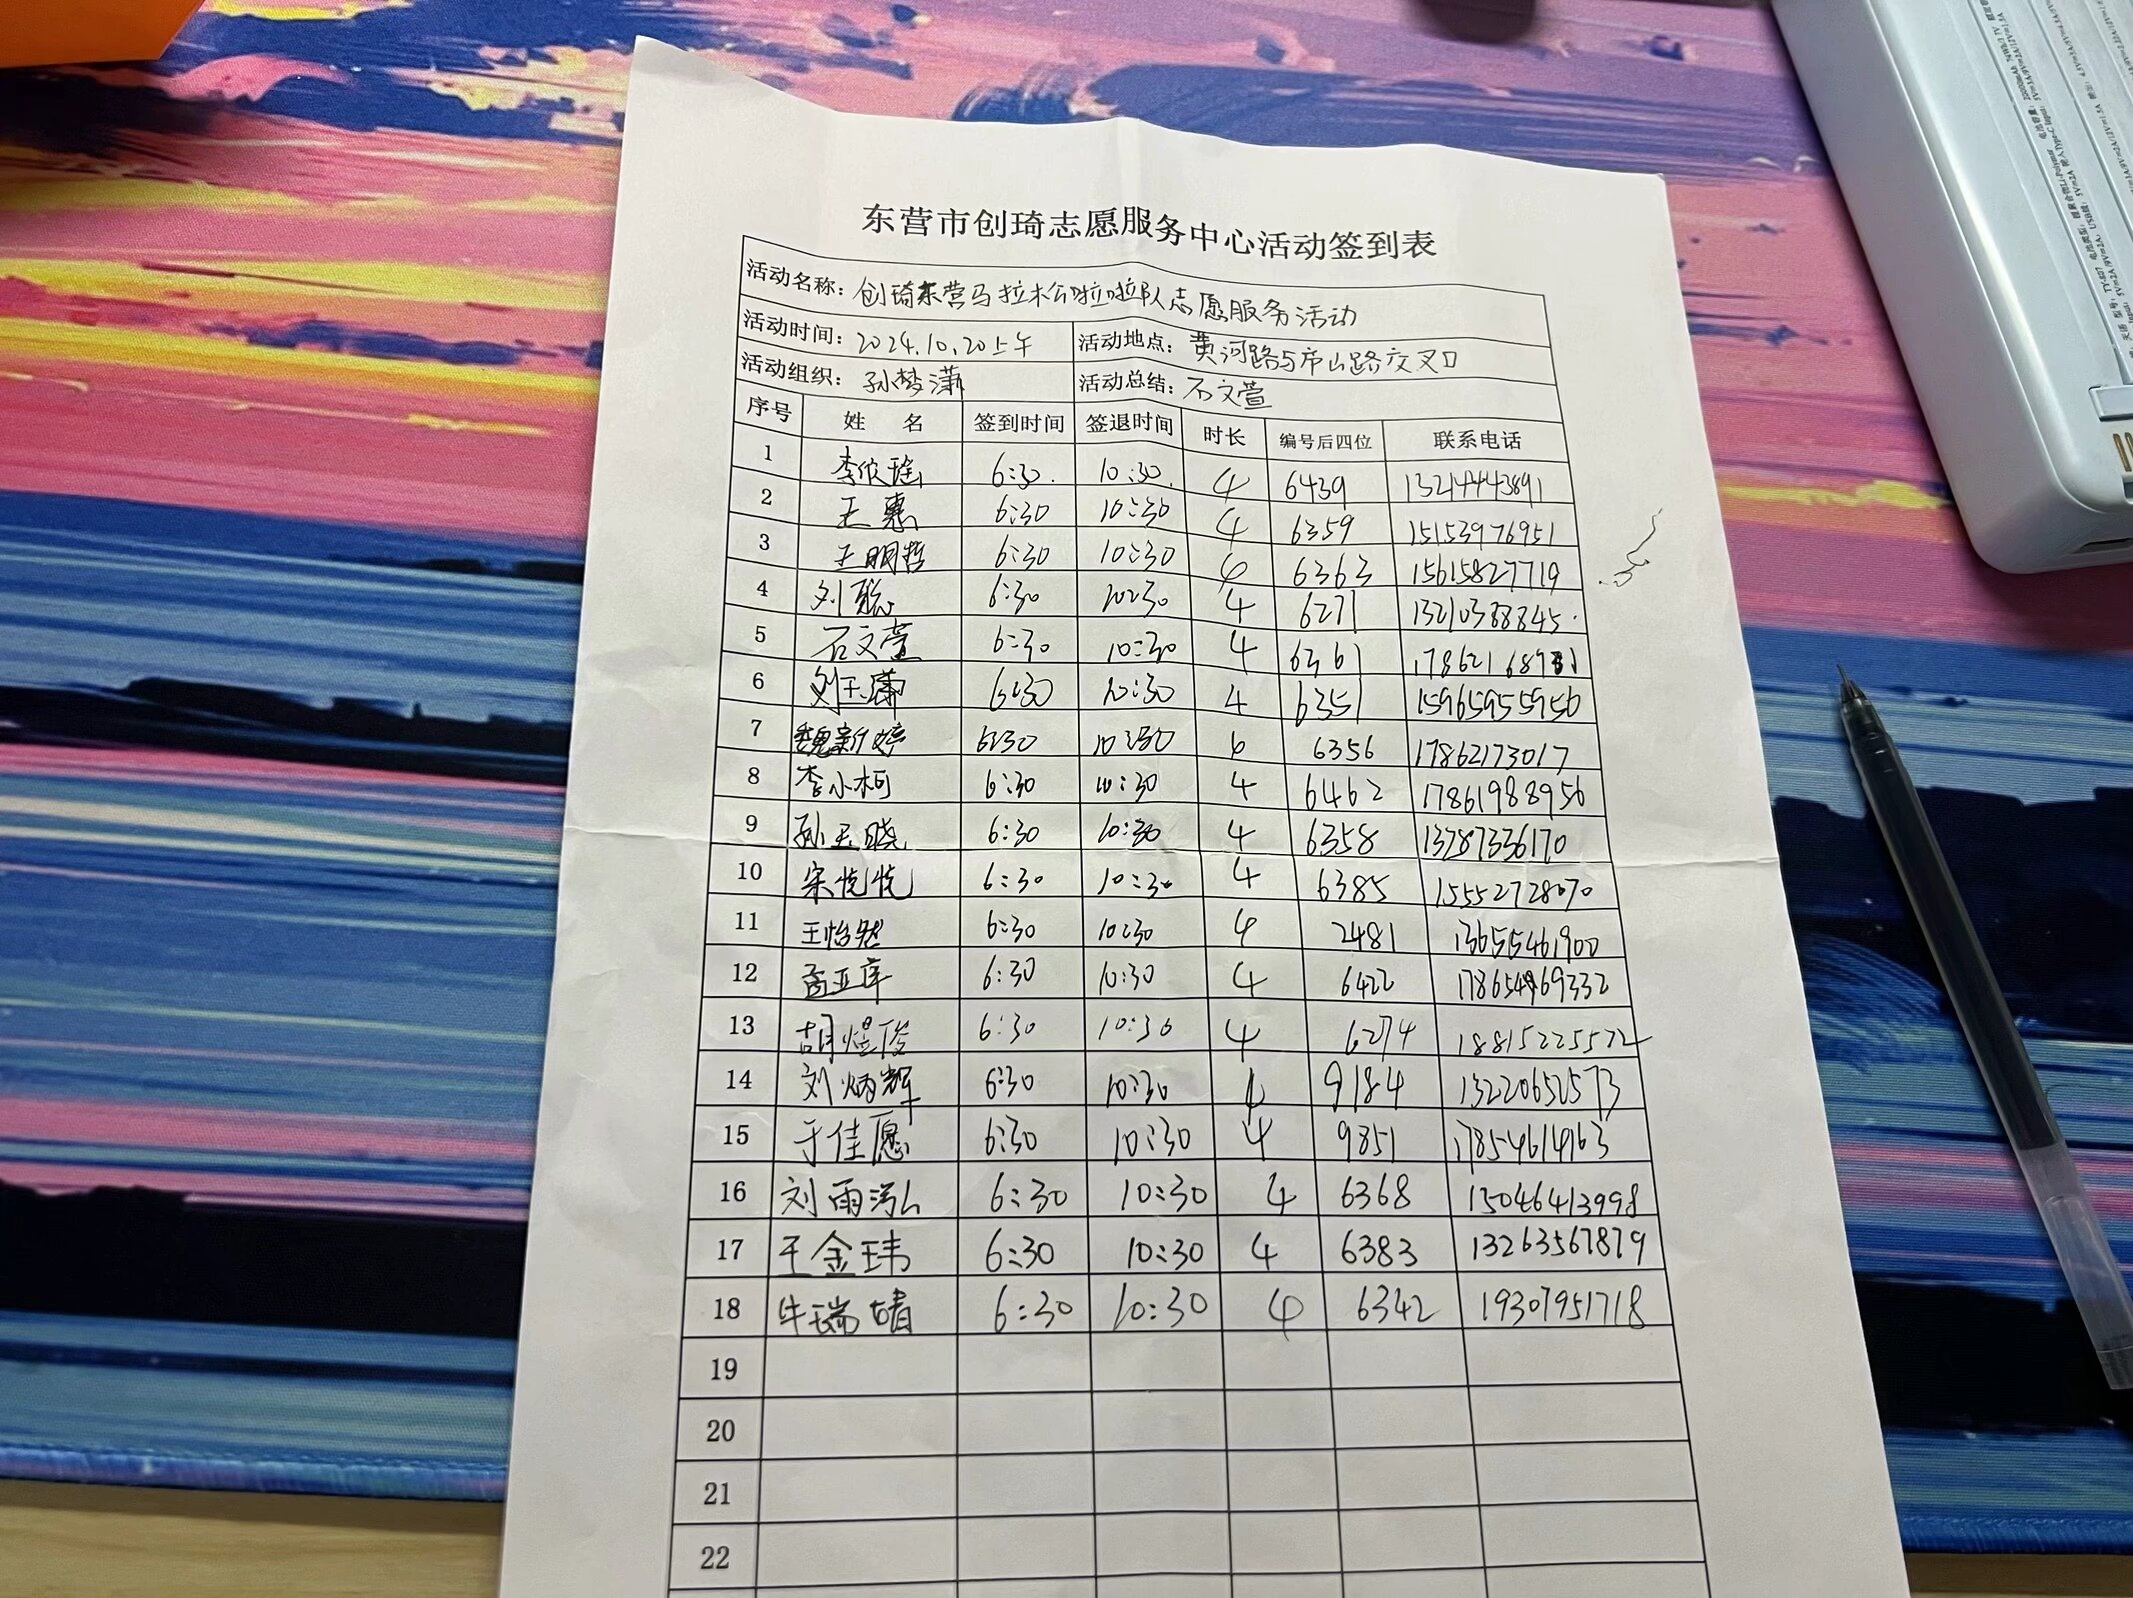 东营市创琦志愿服务中心活动签到表
活动名称: 创琦东营马拉松啦啦队志愿服务活动
活动时间: 2024.10.20上午 活动地点: 黄河路与庐山路交叉口
活动组织: 孙梦潇 活动总结: 石文萱
序号 姓 名 签到时间 签退时间 时长 编号后四位 联系电话
1 李欣瑶 6:30. 10:30. 4 6439 13214443891
2 王惠 6:30 10:30 4 6359 15153976951
3 王明哲 6:30 10:30 6363 15615827719
4 刘聪 6:30 10:30 4 6271 13210388845
5 石文萱 6:30 10:30 4 6361
6 刘玉潇 6:30 10:30 4 6351 15965955956
7 魏新婷 6:30 10:30 6 6356 17862173017
8 李小柯 6:30 10:30 4 6462 17861988956
9 孙玉晓 6:30 10:30 4 6358 13287336170
10 宋悦悦 6:30 10:30 4 6385 15552728070
11 王怡然 6:30 10:30 4 2481 13655461900
12 孟亚库 6:30 10:30 4 6422
13 胡煜俊 6:30 10:30 4 6274 18815225572
14 刘炳辉 6:30 10:30 9184 13220652573
15 于佳愿 6:30 10:30 4 9851 17854614763
16 刘雨泓 6:30 10:30 4 6368 15046413998
17 王金玮 6:30 10:30 4 6383 13263567879
18 牛瑞晴 6:30 10:30 4 6342 19307951718
19
20
21
22